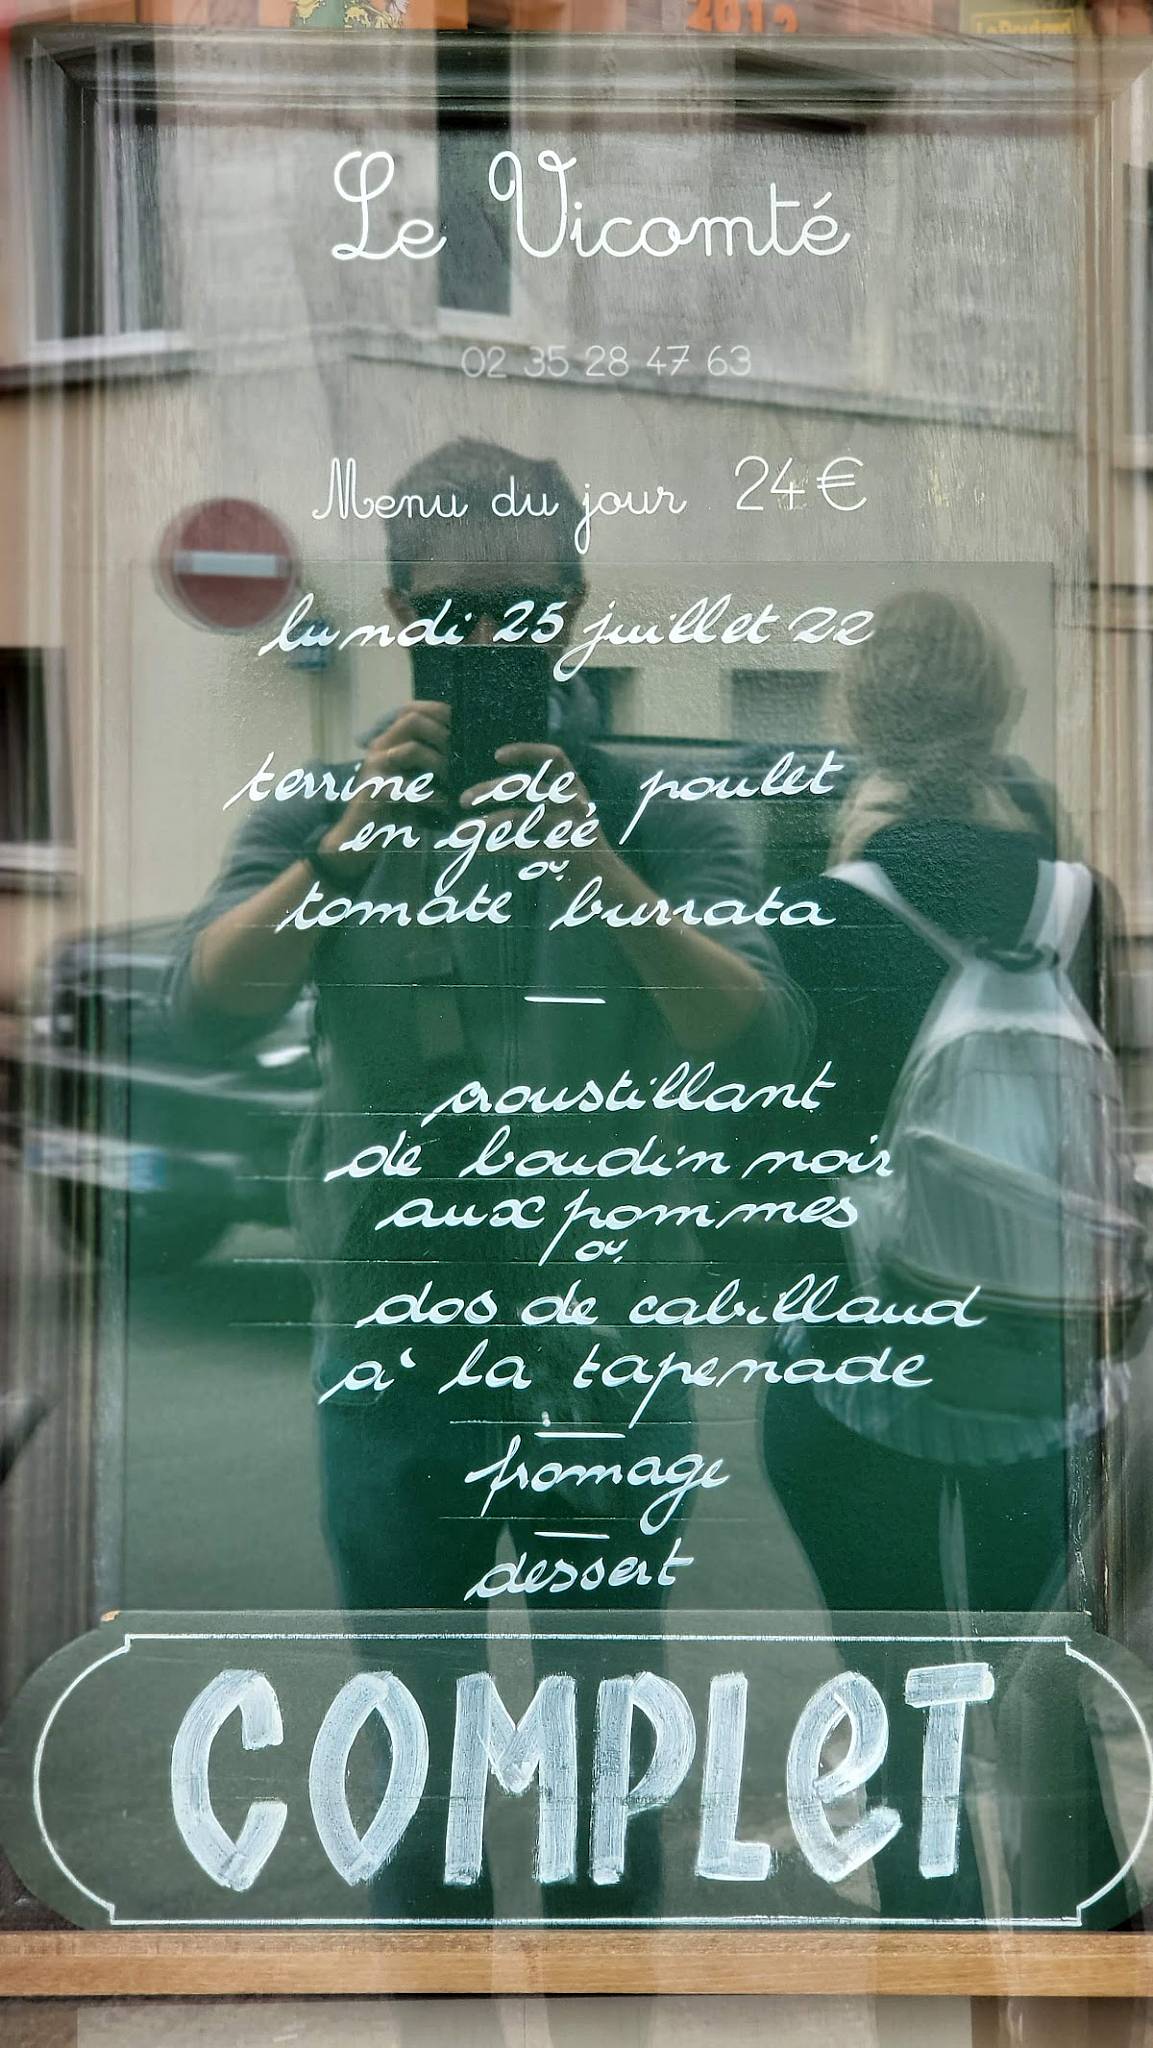 2012
Le Vicomté
02 35 28 47 63
Menu du jour 24€
lundi 25 juillet 22
terrine de poulet
en geleé
ou
tomate burrata
croustillant
de boudin noir
aux pommes
ou
dos de cabillaud
à la tapenade
fromage
dessert
COMPLeT